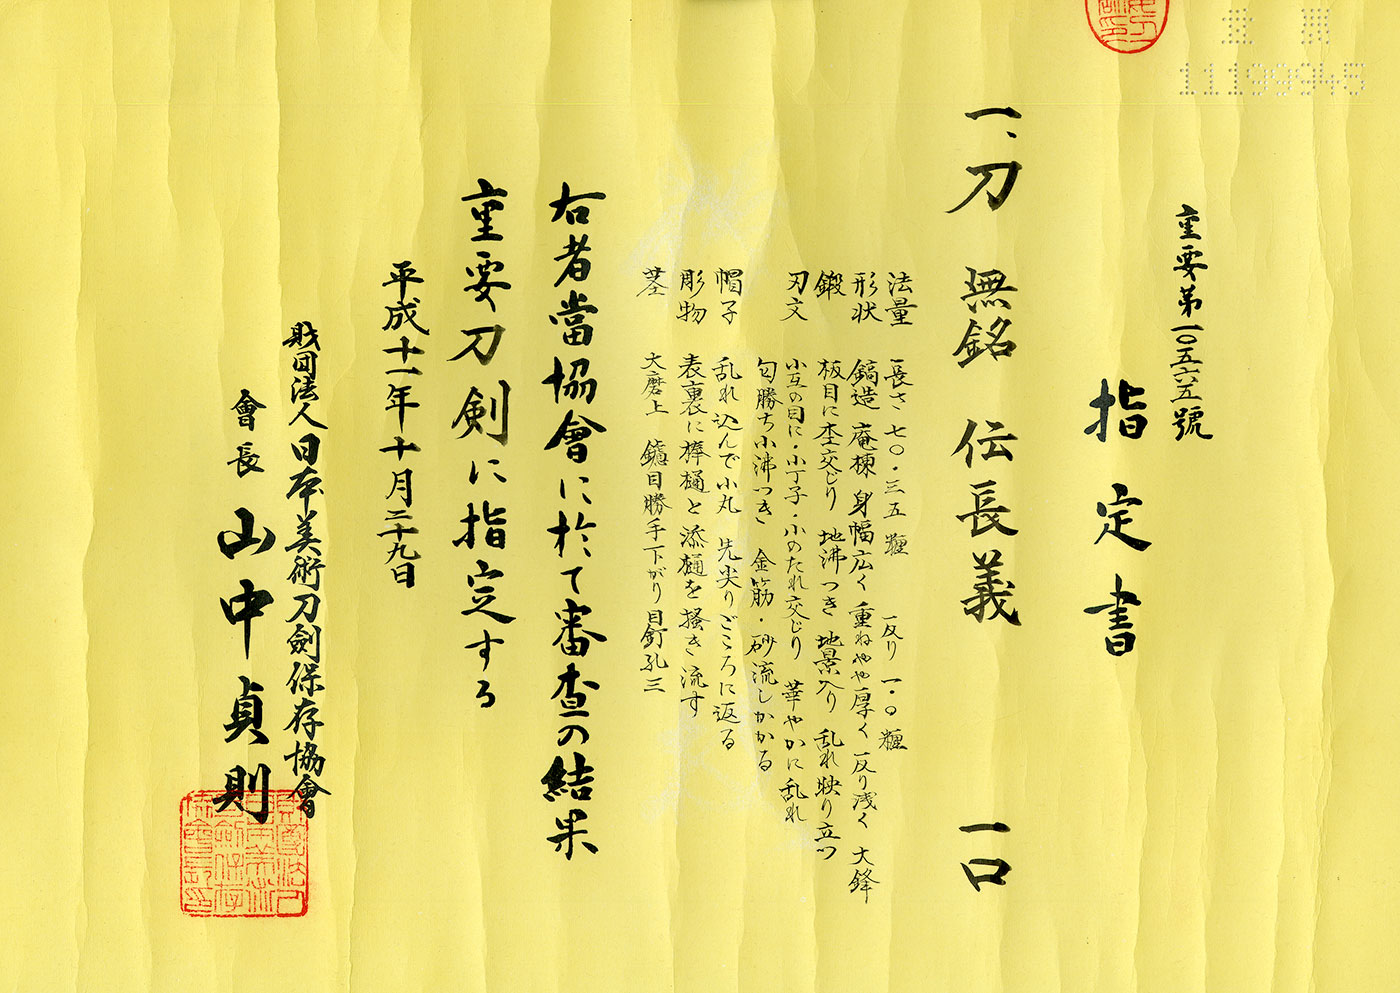 重要
11199945
重要第一〇五六五號
指定書
一、刀 無銘 伝長義 一口
法量 長さ 七〇・三五糎 反り 一・〇糎
形状 鎬造 庵棟 身幅広く 重ねやや厚く 反り浅く 大鋒
鍛 板目に杢交じり 地沸つき 地景入り 乱れ映り立つ
刃文 小互の目に・小丁子・小のたれ交じり 華やかに乱れ
匂勝ち小沸つき 金筋・砂流しかかる
帽子 乱れ込んで小丸 先尖りごころに返る
彫物 表裏に棒樋と添樋を掻き流す
茎 大磨上 鑢目勝手下がり 目釘孔三
右者當協會に於て審査の結果
重要刀剣に指定する
平成十一年十月二十九日
財団法人日本美術刀劍保存協會
會長 山中貞則